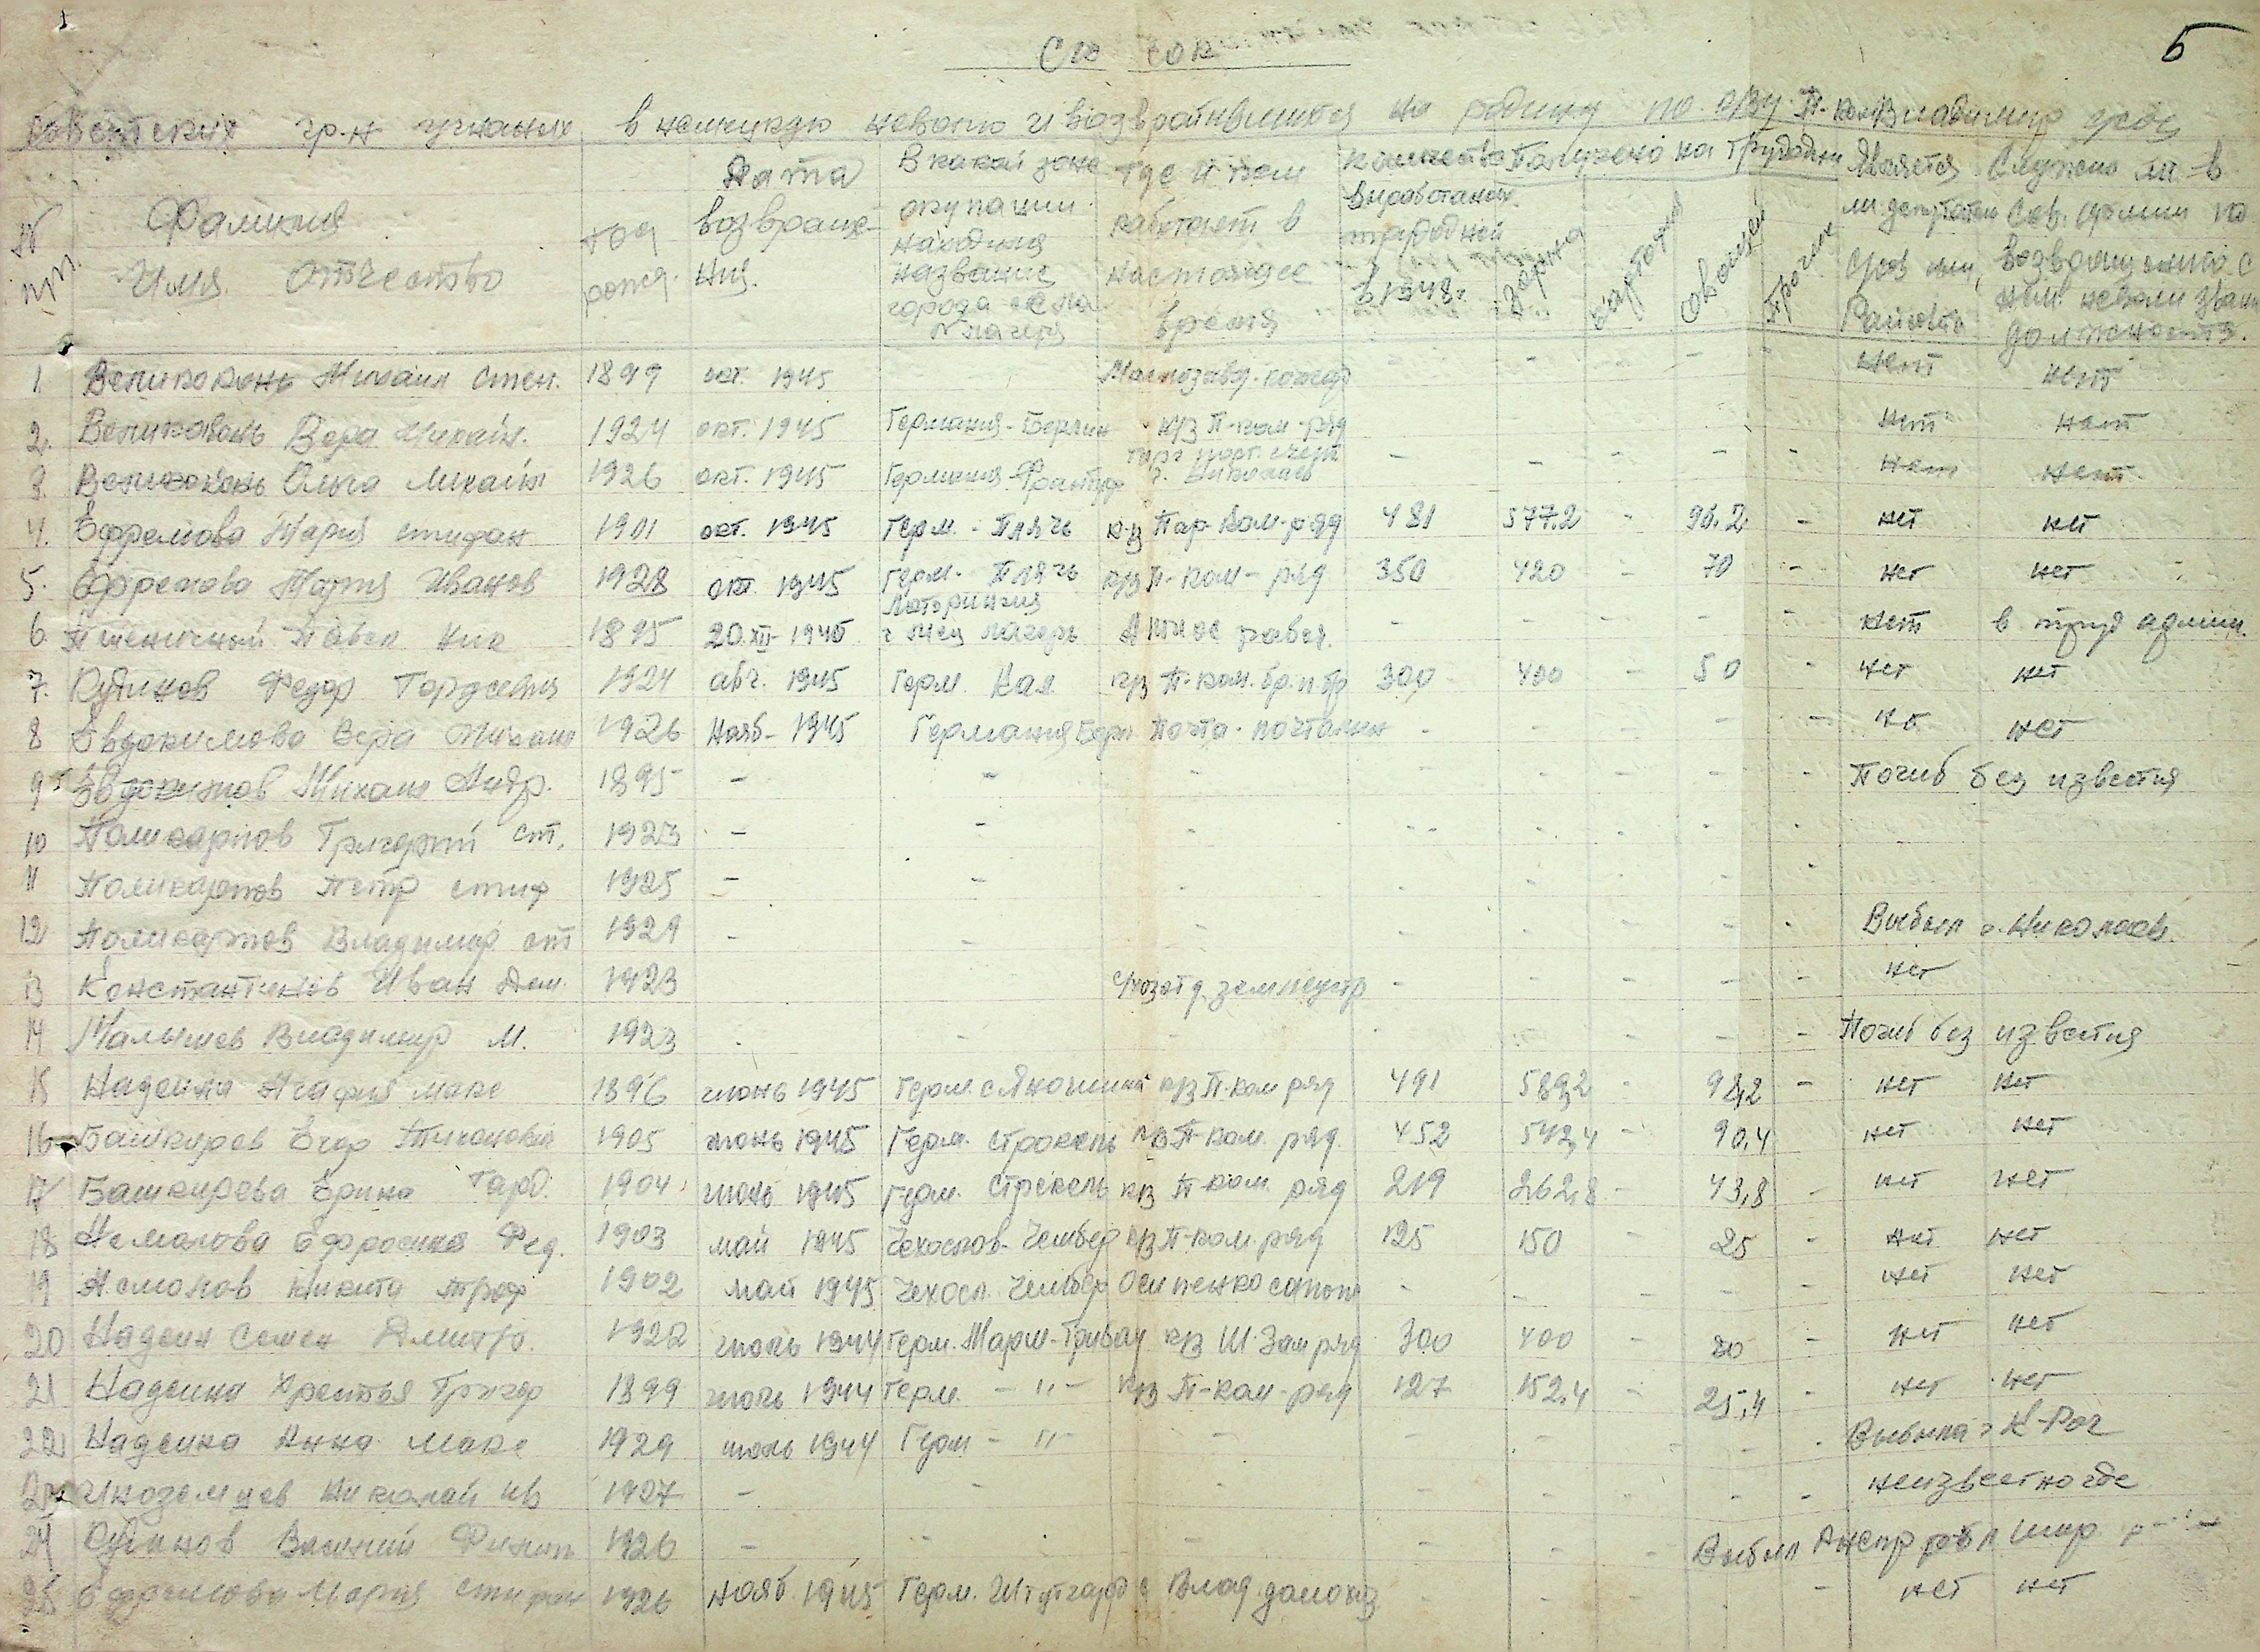 5
Список
советских гр-н угнаных в немецкую неволю и возвратившихся на родину по к/зу П-ком Владимир
№ пп. Фамилия Имя Отчество
год рожд.
Дата возвраще-ния.
В какой зоне окупации находился название города села № лагеря
где и кем работает в настоящее время
количество выработаных трудодней в 1948г.
Получено на трудодни
зерна
картофел
овощей
прочие
Является ли депутатом
Служил ли в Сов. армии по возвращению с нем. неволи зван должность.
1 Великоконь Михаил степ. 1899 окт. 1945 - - - - - нет нет
2. Великоконь Вера Михайл. 1924 окт. 1945 Германия-Берлин к/з П-ком-ряд - - - - - нет нет
3. Великоконь Ольга Михайл 1926 окт. 1945 Германия г. Николаев - - - - - нет нет
4. Ефремова Мария стифан 1901 окт. 1945 Герм. - к/з Пар-Ком-ряд 481 577.2 - 96.2 - нет нет
5. Ефремова Мария Иванов 1928 окт. 1945 Герм. к/з П-ком-ряд 350 420 - 70 - нет нет
6. Пшеничный Павел Ник 1895 20.XII-1945 Лоторингия г. Мец лагерь рабоч. - - - - - нет в труд армии.
7. Кудинов Федор Гордеевич 1924 авг. 1945 Герм. к/з П-ком. 300 400 - 50 - нет нет
8 Евдокимова Вера Михаил 1926 нояб-1945 Германия Берл Почта-почтальон - - - - - нет нет
9 Евдокимов Михаил Андр. 1895 - - - - - - - - Погиб без известия
10 Поликарпов Григорий ст. 1923 - - - - - - - -
11 Поликарпов Петр стиф 1925 - - - - - - - -
12 Поликарпов Владимир ст 1929 - - - - - - - - Выбыл г. Николаев.
13 Константинов Иван Дем. 1923 землеустр - - - - - нет
14 Малышев Владимир М. 1923 - - - - - - - - Погиб без известия
15 Надеина Агафия Макс 1896 июнь 1945 Герм. к/з П-ком ряд 491 589,2 - 98,2 - нет нет
16 Башкирев Егор Тихонович 1905 июнь 1945 Герм. к/з П-ком. ряд. 452 542,4 - 90,4 нет нет
17 Башкирева Ерина Горд. 1904 июнь 1945 Герм. к/з П-ком. ряд 219 262,8 - 43,8 - нет нет
18 Ефросиния Фед. 1903 май 1945 Чехослов. к/з П-ком. ряд 125 150 - 25 - нет нет
19 Никита Троф 1902 май 1945 Чехосл. Осипенко сапож - - - - - нет нет
20 Надеин Семен Дмитр. 1922 июль 1944 Герм. к/з ряд 300 400 - - нет нет
21 Надеина Христья Григор 1899 июль 1944 Герм. - " - к/з П-ком-ряд 127 152,4 - 25,4 - нет нет
22 Надеина Анна Макс 1929 июль 1944 Герм - " - - - - - - - Выбыла г К-Рог
23 Иноземцев Николай Ив 1927 - - - - - - - - неизвестно где
24 Кудинов Василий Филип 1926 - - - - - - Выбыл Днепр
25 Ефремова Мария Стифан 1926 нояб. 1945 Герм. Штутгард - - - - - нет нет